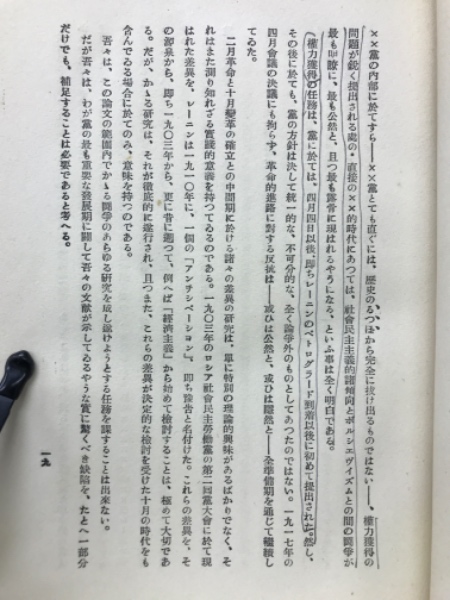 ××黨の內部に於てすら——××黨とても直ぐには、歷史のるつぼから完全に拔け出るものではない——、權力獲得の
問題が銳く提出される處の・直接の××的時代にあつては、社會民主主義的諸傾向とボルシェヴィズムとの間の鬪爭が
最も明瞭に、最も公然と、且つ最も露骨に現はれるやうになる、といふ事は全く明白である。
權力獲得の任務は、黨に於ては、四月四日以後、卽ちレーニンのペトログラード到着以後に初めて提出された。然し、
その後に於ても、黨の方針は決して統一的な、不可分的な、全く論爭外のものとしてあつたのではない。一九一七年の
四月會議の決議にも拘らず、革命的進路に對する反抗は——或ひは公然と、或ひは隱然と——全準備期を通じて繼續し
てゐた。
二月革命と十月變革の確立との中間期に於ける諸々の差異の硏究は、單に特別の理論的興味があるばかりでなく、そ
れはまた測り知れざる實踐的意義を持つてゐるのである。一九〇三年のロシア社會民主勞働黨の第二回黨大會に於て現
はれた差異を、レーニンは一九一〇年に、一個の『アンチシペーション』、卽ち豫告と名付けた。これらの差異を、そ
の源泉から、卽ち一九〇三年から、更に昔に遡つて、例へば『經濟主義』から始めて檢討することは、極めて大切であ
る。だが、かゝる硏究は、それが徹底的に遂行され、且つまた、これらの差異が決定的な檢討を受けた十月の時代をも
含んでゐる場合に於てのみ、意味を持つのである。
吾々は、この論文の範圍內でかゝる鬪爭のあらゆる硏究を成し遂げようとする任務を課することは出來ない。
だが吾々は、わが黨の最も重要な發展期に關して吾々の文獻が示してゐるやうな實に驚くべき缺陷を、たとへ一部分
だけでも、補足することは必要であると考へる。
一九